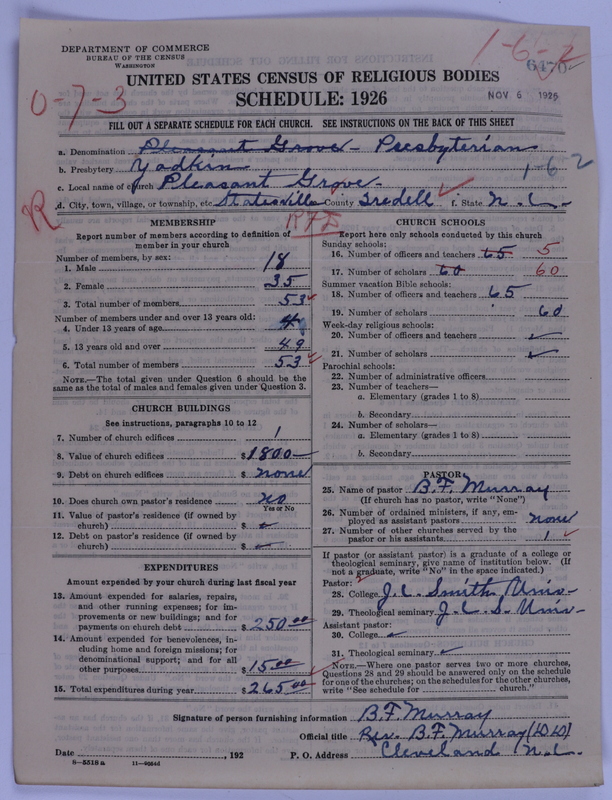 DEPARTMENT OF COMMERCE
BUREAU OF THE CENSUS
WASHINGTON
1-6-2
6470
UNITED STATES CENSUS OF RELIGIOUS BODIES
SCHEDULE: 1926
NOV 6 1926
0-7-3
FILL OUT A SEPARATE SCHEDULE FOR EACH CHURCH. SEE INSTRUCTIONS ON THE BACK OF THIS SHEET
a. Denomination Pleasant Grove - Presbyterian
b. Presbytery Yadkin
1-6-2
c. Local name of church Pleasant Grove
d. City, town, village, or township, etc. Statesville County Iredell f. State N.C.
R
RFD
MEMBERSHIP
Report number of members according to definition of member in your church
Number of members, by sex:
1. Male 18
2. Female 35
3. Total number of members 53
Number of members under and over 13 years old:
4. Under 13 years of age 4
5. 13 years old and over 49
6. Total number of members 53
NOTE.—The total given under Question 6 should be the same as the total of males and females given under Question 3.
CHURCH BUILDINGS
See instructions, paragraphs 10 to 12
7. Number of church edifices 1
8. Value of church edifices $ 1800
9. Debt on church edifices $ none
10. Does church own pastor's residence no
Yes or No
11. Value of pastor's residence (if owned by church) $
12. Debt on pastor's residence (if owned by church) $
EXPENDITURES
Amount expended by your church during last fiscal year
13. Amount expended for salaries, repairs, and other running expenses; for improvements or new buildings; and for payments on church debt $ 250.00
14. Amount expended for benevolences, including home and foreign missions; for denominational support; and for all other purposes $ 15.00
15. Total expenditures during year $ 265.00
CHURCH SCHOOLS
Report here only schools conducted by this church
Sunday schools:
16. Number of officers and teachers 65 5
17. Number of scholars 60 60
Summer vacation Bible schools:
18. Number of officers and teachers 65
19. Number of scholars 60
Week-day religious schools:
20. Number of officers and teachers
21. Number of scholars
Parochial schools:
22. Number of administrative officers
23. Number of teachers—
a. Elementary (grades 1 to 8)
b. Secondary
24. Number of scholars—
a. Elementary (grades 1 to 8)
b. Secondary
PASTOR
25. Name of pastor B.F. Murray
(If church has no pastor, write "None")
26. Number of ordained ministers, if any, employed as assistant pastors none
27. Number of other churches served by the pastor or his assistants 1
If pastor (or assistant pastor) is a graduate of a college or theological seminary, give name of institution below. (If not a graduate, write "No" in the space indicated.)
Pastor:
28. College J.C. Smith Univ-
29. Theological seminary J.C.S. Univ-
Assistant pastor:
30. College
31. Theological seminary
NOTE.—Where one pastor serves two or more churches, Questions 28 and 29 should be answered only on the schedule for one of the churches; on the schedules for the other churches, write "See schedule for church."
Signature of person furnishing information B.F. Murray
Official title Rev. B.F. Murray (D.D.)
Date , 192 P. O. Address Cleveland N.C.
8—5518 a